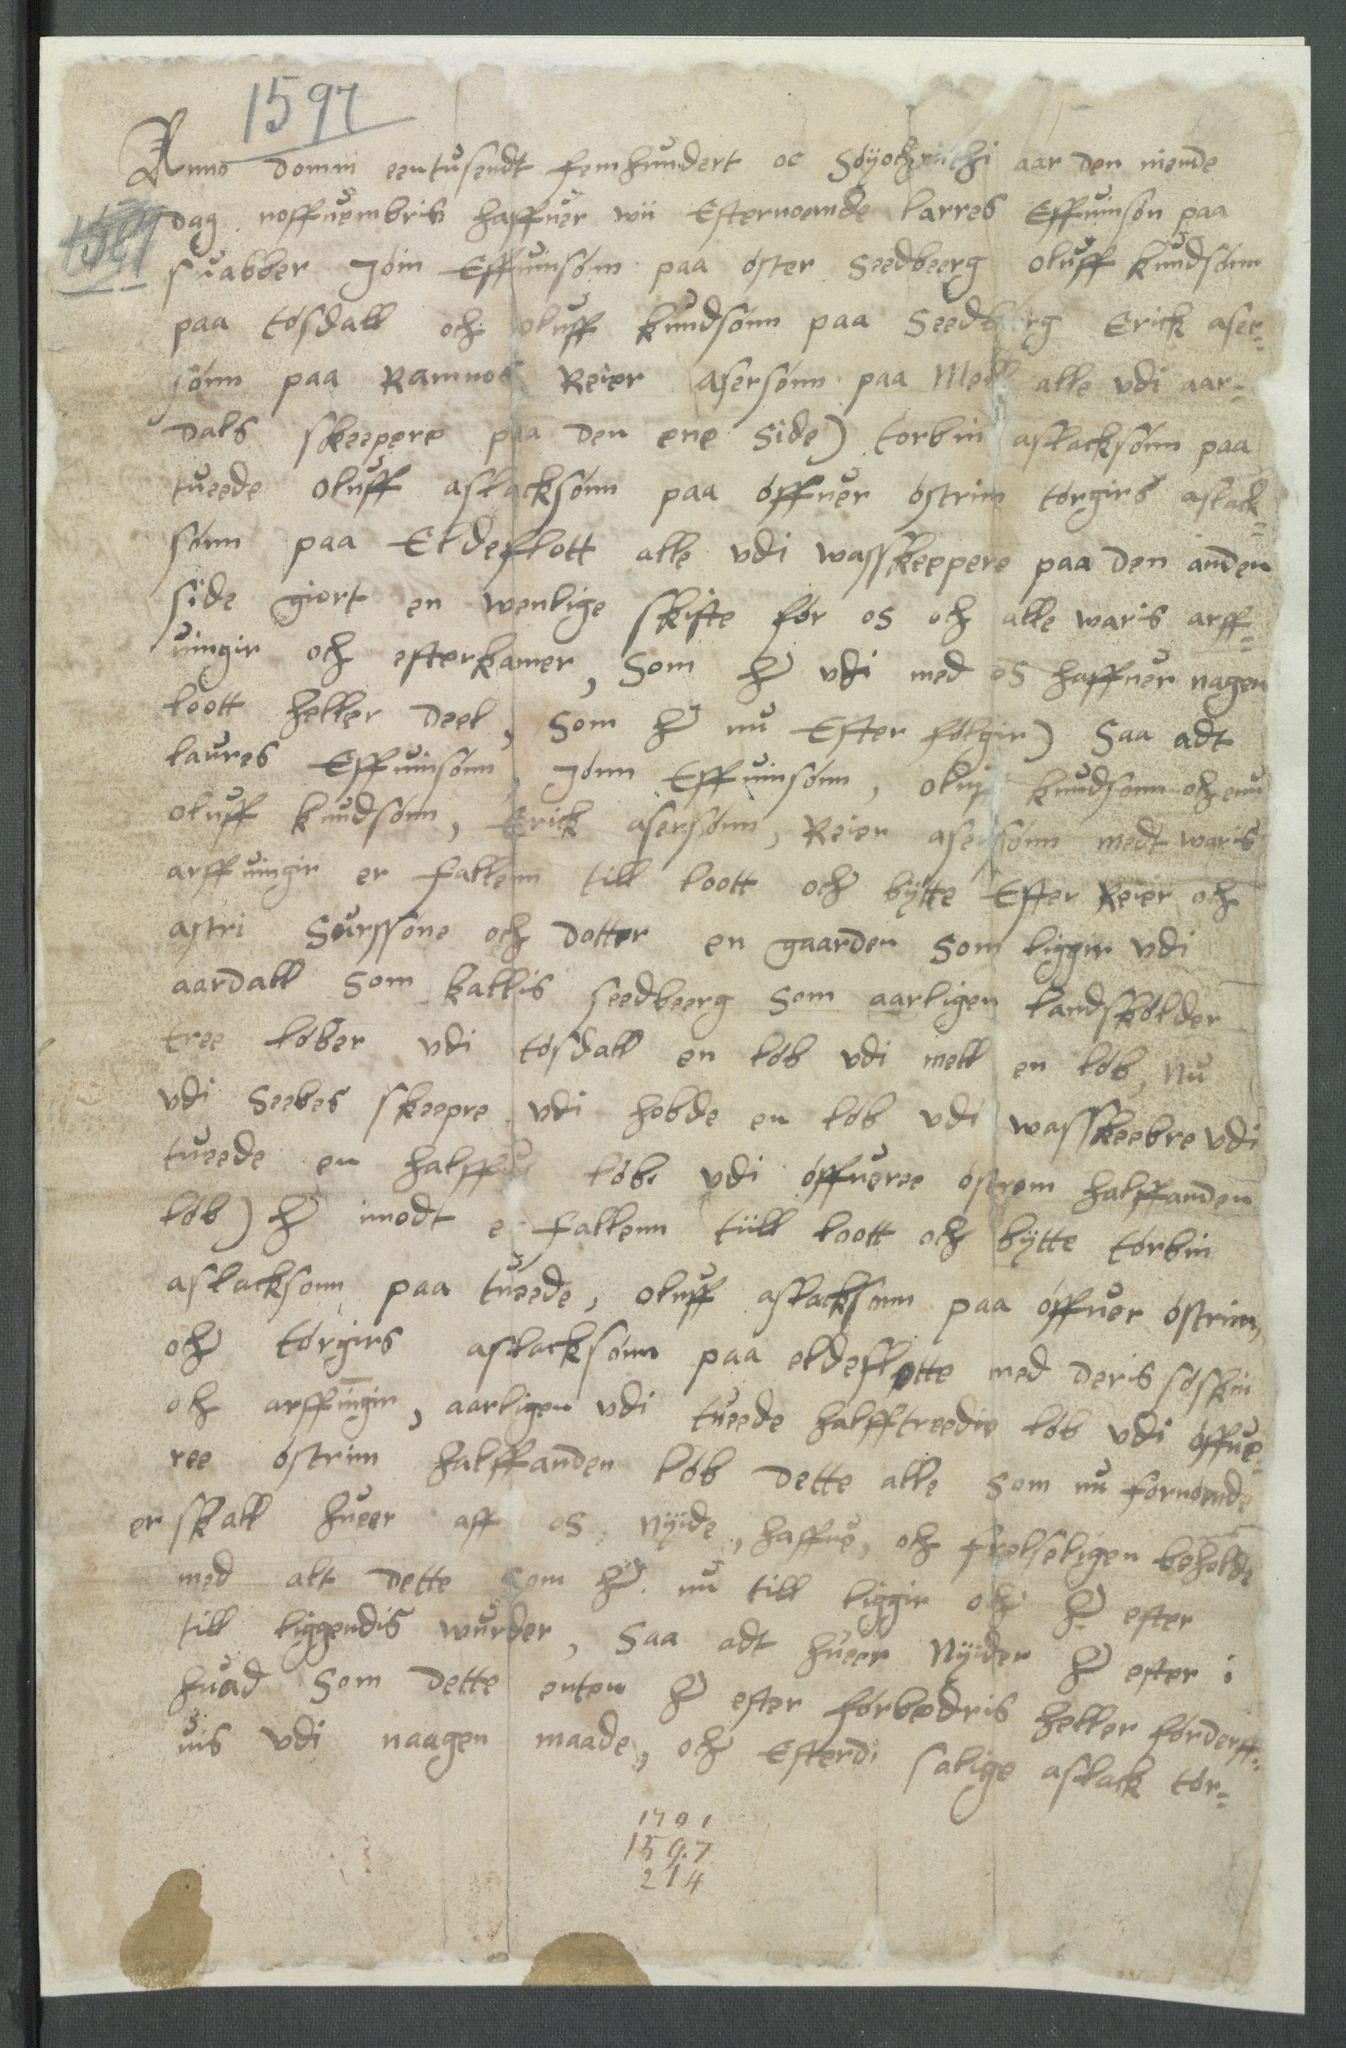 1597
Anno domni eentusendt femhundert oc Søyochnithi aar den niende
1597
dag noffuembris haffuer wii Efternoemde larres Effuinsøn paa
suabber Jøin Effuinsønn paa øster Seedbeerg oluff kundsønn
paa tøsdall och oluff kundsønn paa Seedberg Erick aser¬
sønn paa Ramnos Reier asersønn paa Mell alle vdi aar¬
dals skeepere paa den ene Side) torbin aslacksønn paa
tueede oluff aslacksønn paa øffuer østrim torgirs aslack¬
sønn paa Eldeflott alle vdi wasskeepere paa den anden
side giort en wenlige skifte for os och alle waris arff¬
uingir och efterkamer, Som her vdi med os haffuer nagen
loott heller deel, Som her nu Efter følgir) Saa adt
laures Effuinsønn, Jønn Effuinsønn, oluf knudsønn och enn
oluff knudsønn, Erick asersønn, Reier asersønn medt waris
arffuingir er fallenn till loott och bytte Efter Reier och
astri Surssøne och dotter en gaarder Som liggir vdi
aardall Som kallis seedbeerg Som aarligen landskølder
tree løber vdi tøsdall en løb vdi mell en løb, Nu
vdi Seebes skeepre vdi hobde en løb vdi wasskeebre vdi
tueede en halffue løb vdi øffueree østrem halffanden
løb) her imodt e fallenn till loott och bytte torbin
aslacksonn paa tueede, oluff aslacksønn paa øffuer østrim,
och torgirs aslacksønn paa eldeflotte med deris søskin
och arffingir, aarligen vdi tueede halfftreedie løb vdi øffue
ree østrim halffanden løb dette alle Som nu fornoemde
er skall hueer aff os nyde, haffue, och frelseligen beholde
med alt dette som her nu till liggir och her efter
till liggendis wurder, Saa adt hueer Nyder her efter i
huad Som dette enten her efter forbedris heller forderff¬
uis vdi naagen maade, och Efterdi salige aslack tor¬
1791
1597
214